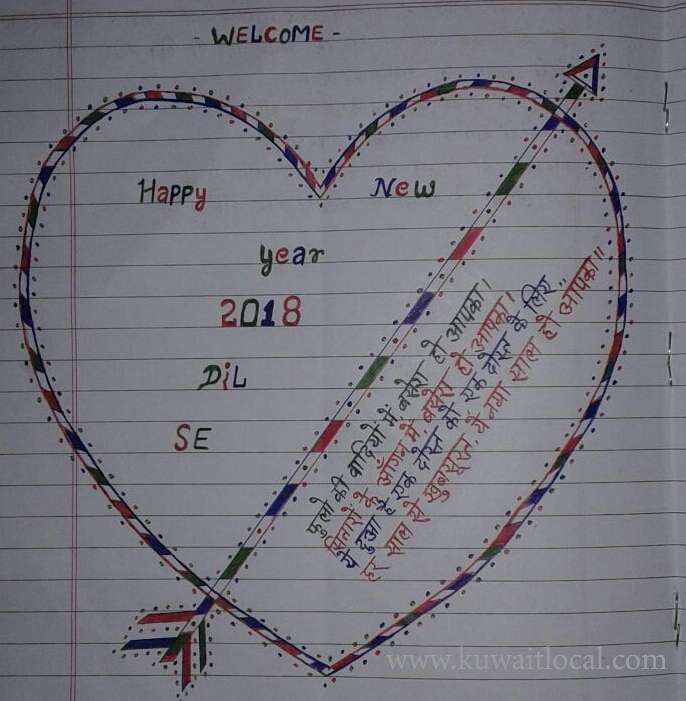 - WELCOME -
Happy New
year
2018
DiL
SE
फुलो की वादियो में, बसेरा हो आपका।
सितारों के आँगन मे बसेरा हो आपका।
ये दुआ है एक दोस्त की एक दोस्त के लिए,
हर साल से खुबसूरत, ये नया साल हो आपका॥
www.kuwaitlocal.com